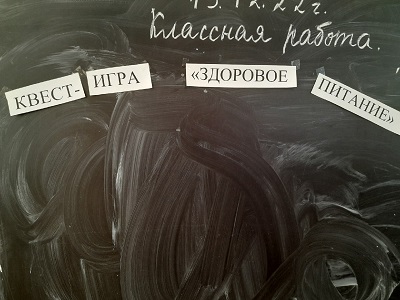 13.12.22г.
Классная работа.
КВЕСТ- ИГРА «ЗДОРОВОЕ ПИТАНИЕ»